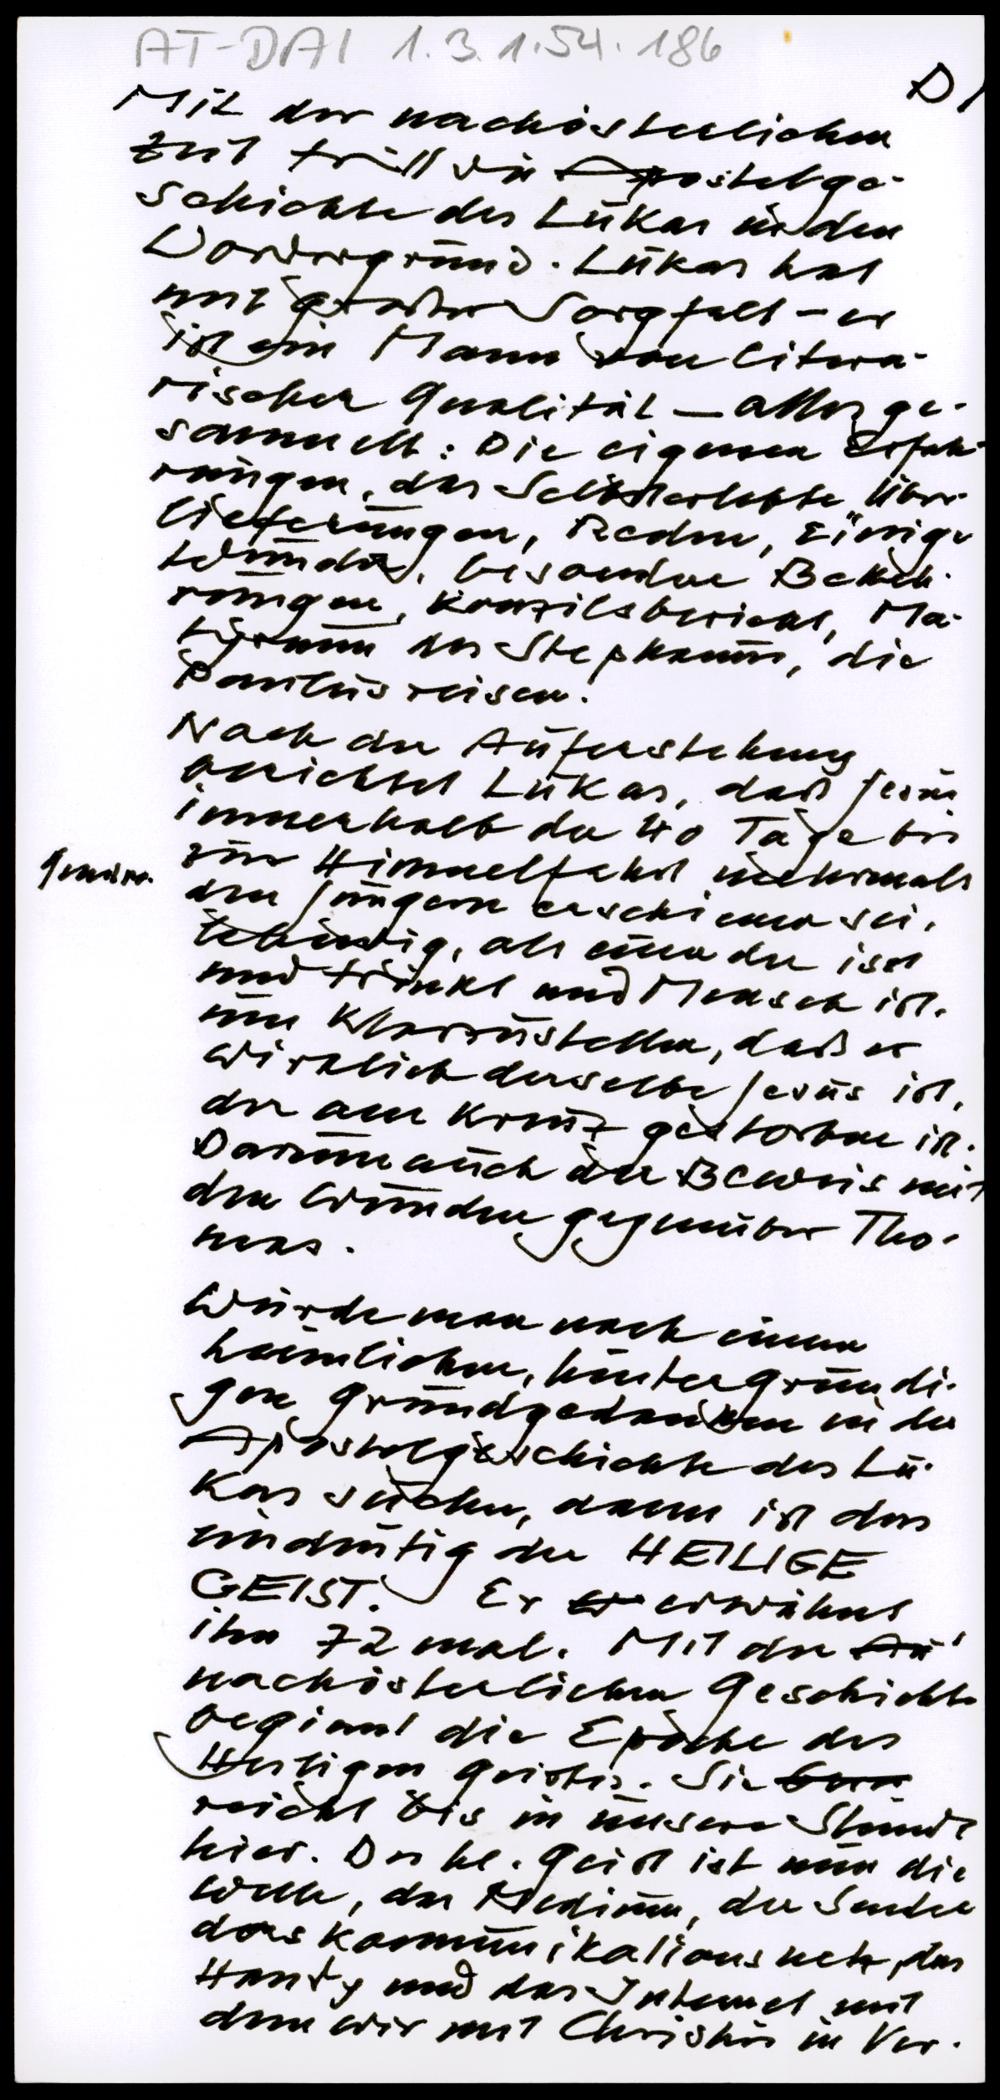 AT-DAI 1.3.1.54.186
D1
Mit der nachösterlichen
Zeit tritt die Apostelge-
schichte des Lukas in den
Vordergrund. Lukas hat
mit großer Sorgfalt – er
ist ein Mann von litera-
rischer Qualität – alles ge-
sammelt: Die eigenen Erfah-
rungen, das Selbsterlebte, Über-
lieferungen, Reden, Einige
Wunder, besondere Bekeh-
rungen, Konzilsbericht, Ma-
tyrium des Stephanus, die
Paulusreisen.
Nach der Auferstehung
berichtet Lukas, daß Jesus
innerhalb der 40 Tage bis
zur Himmelfahrt mehrmals
den Jüngern erschienen sei,
lebendig, als einer der isst
und trinkt und Mensch ist.
um klarzustellen, daß er
wirklich derselbe Jesus ist,
der am Kreuz gestorben ist.
Darum auch der Beweis mit
den Wunden gegenüber Tho-
mas.
Würde man nach einem
heimlichen, hintergründi-
gen Grundgedanken in der
Apostelgeschichte des Lu-
kas suchen, dann ist das
eindeutig der HEILIGE
GEIST. Er erwähnt
ihn 72 mal. Mit der
nachösterlichen Geschichte
beginnt die Epoche des
Heiligen Geistes. Sie
reicht bis in unsere Stunde
hier. Der hl. Geist ist nun die
Welle, das Medium, der Sender
das Kommunikationsnetz, das
Handy und das Internet mit
dem wir mit Christus in Ver-